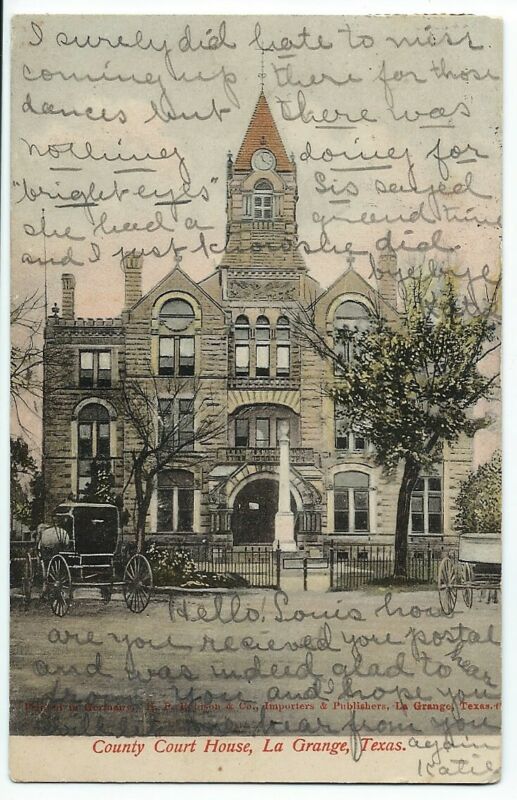 I surely did hate to miss
coming up there for those
dances but there was
nothing doing for
"bright eyes" Sis sayed
she had a grand time
and I just know she did
bye bye
Katie
Hello Louis how
are you recieved you postal
and was indeed glad to hear
from you and I hope you
will
hear from you
again
Katie
Printed in Germany. & Co., Importers & Publishers, La Grange, Texas.
County Court House, La Grange, Texas.